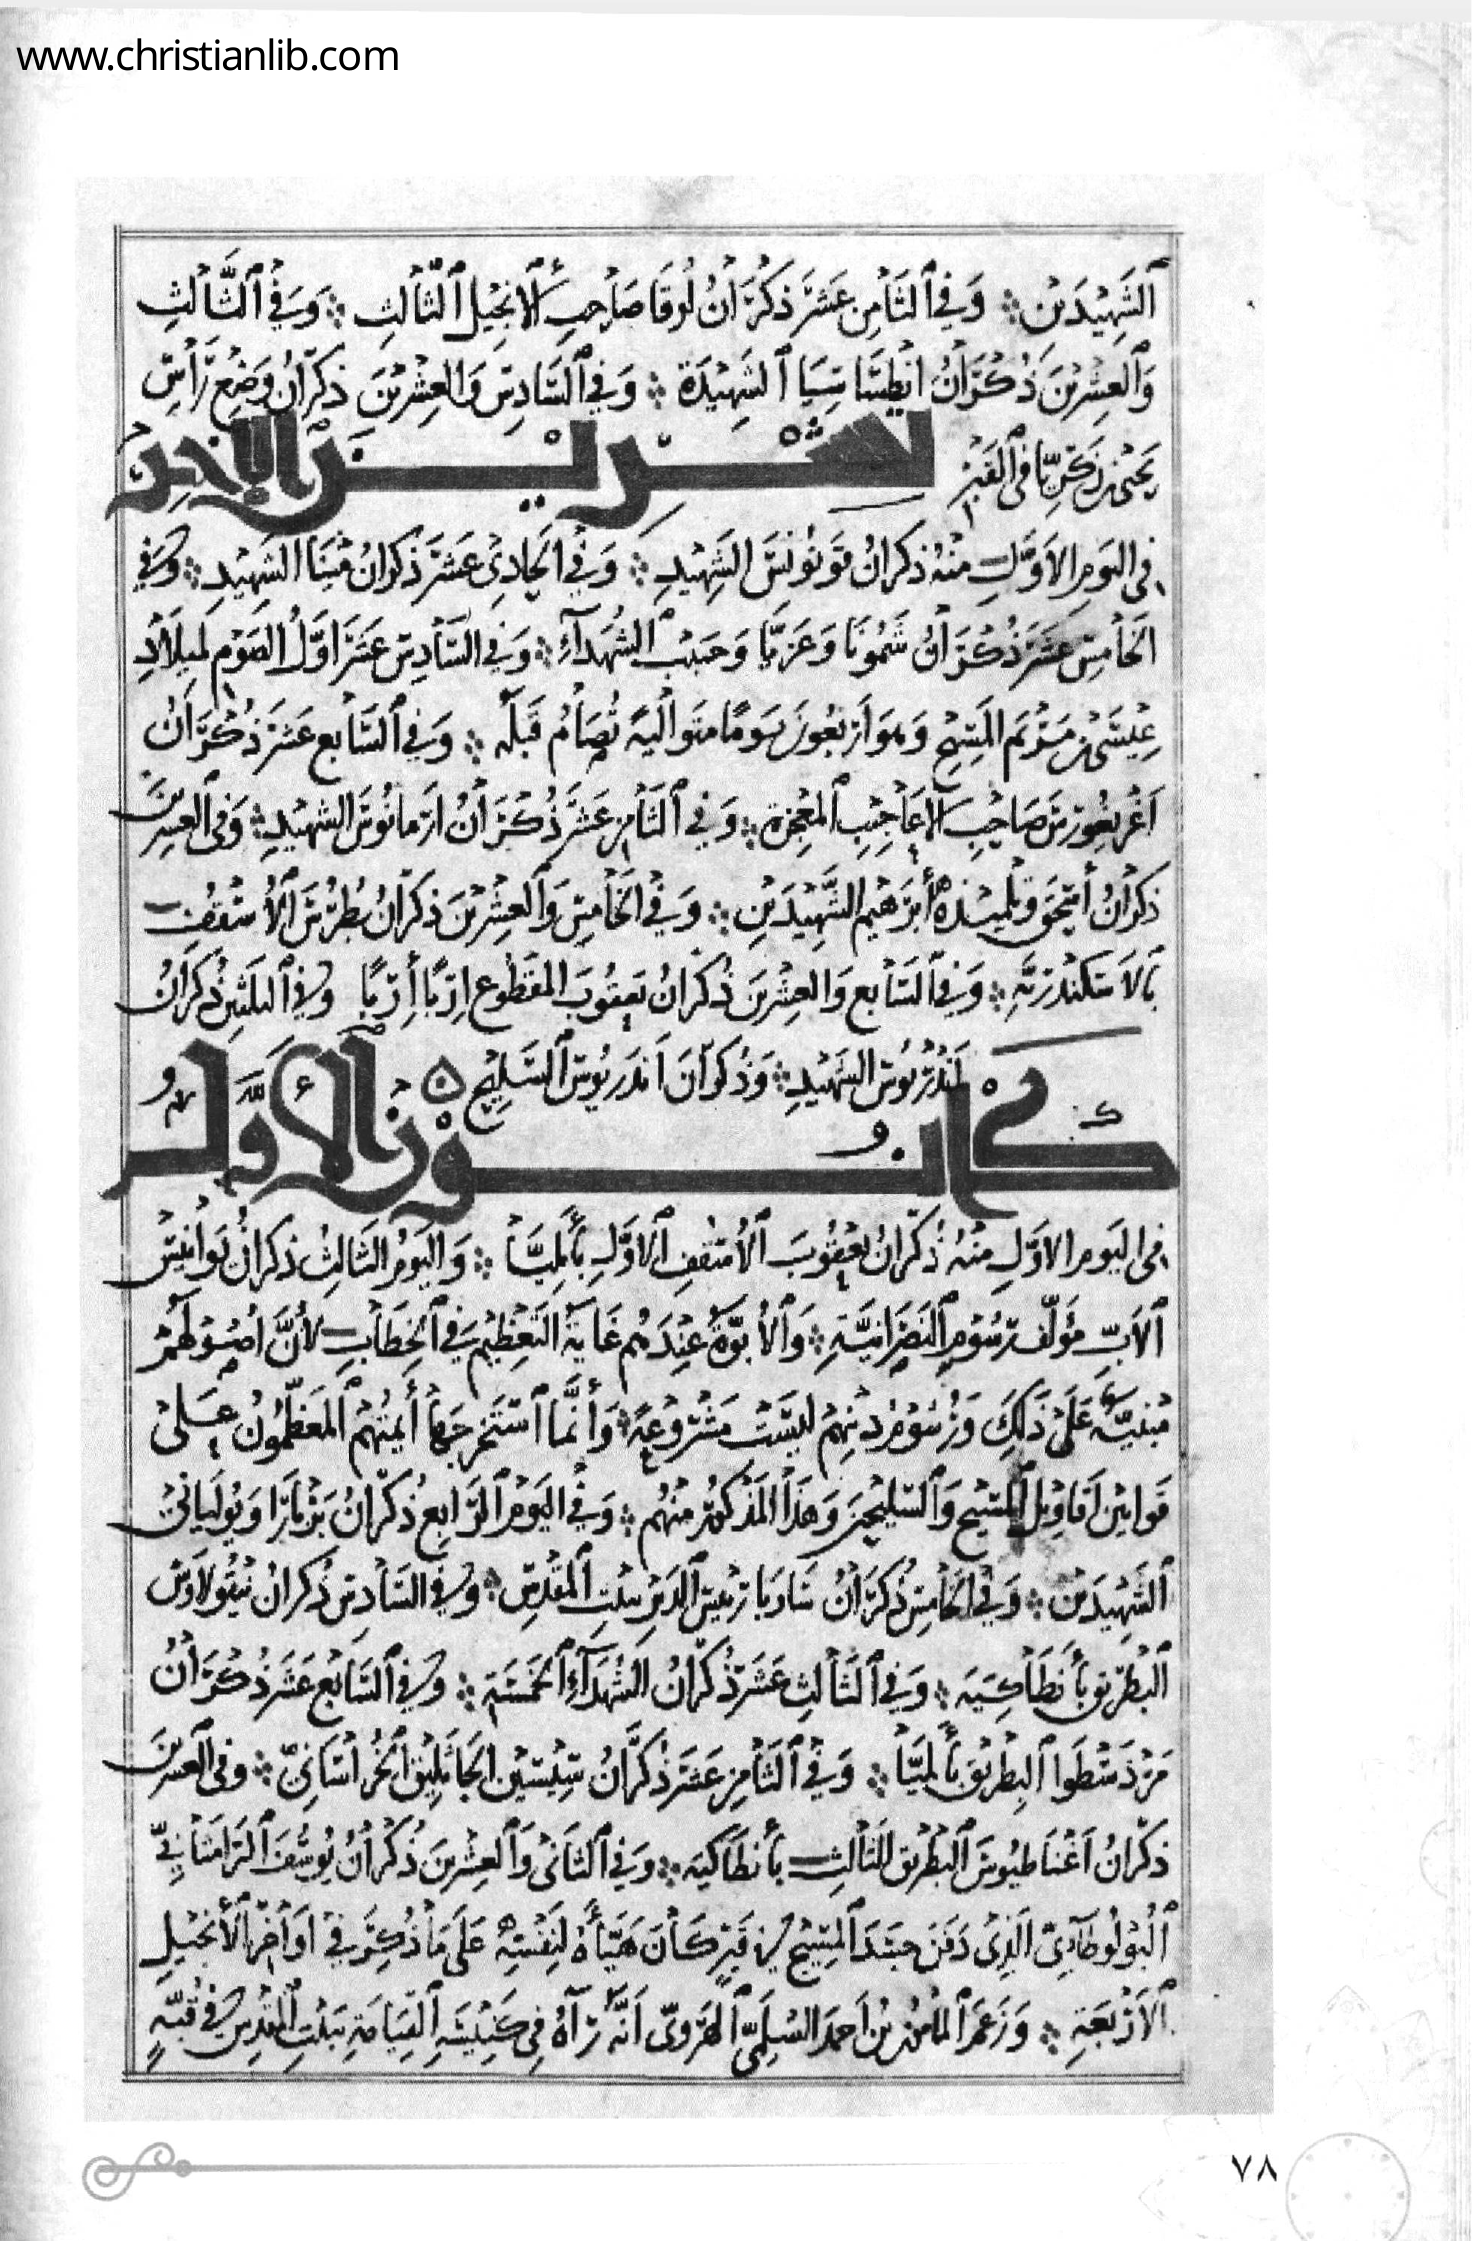 www.christianlib.com
الشَهِيْدَيْنِ ܀ وَفِي الثَامِنِ عَشَرَ ذُكْرَانُ لُوقَا صَاحِبِ الانجِيْلِ الثَّالثِ ܀ وَفِي الثَّالثِ
وَالعِشْرِيْنَ ذُكْرَانُ انِطِسَاسِيَا الشَهِيْدَة ܀ وَفِي السَّادِسِ وَالعِشْرِيْنَ ذِكرَانُ وَضْعِ رَأسِ
يَحيَى بن زَكَرِيّا في القَبْرِ تشرين الاخر
في اليَومِ الاَوَّلِ مِنْهُ ذِكرَانُ قَونُونَسَ الشَهِيْدِ ܀ وَفِي الحَادِيْ عَشَرَ ذكرَانُ مِينَا الشَهِيْدِ ܀ وَفِي
الخَامِسَ عَشَرَ ذُكْرَانُ شَمُونَا وَعَزيَّا وَحَبِيبٍ الشُهَدَآءِ ܀ وَفِي السَّادِسَ عَشَرَ اوَّلُ الصَومِ لِمِيلَادِ
عِيْسَى بن مَرْيَمَ المَسِيْحِ وَهوَ اَربَعُونَ يَومًا متَوَالِيَةً تُصَامُ قَبْلَهُ ܀ وَفِي السَّابِع عَشَرَ ذُكْرَانُ
اَغْرِيغُورِيسَ صَاحِبِ الاعَاجِيبِ المُعْجِزَةِ ܀ وَفِي الثَامِن عَشَرَ ذُكْرَانُ ارَمَانُوسَ الشهيْدِ ܀ وَفي العِشرِينَ
ذِكْرَانُ اسْحٰقَ وَتِلْمِيْذِهِ أبْرَهِيم الشَّهِيْدَيْنِ ܀ وَفِي الخَامِسِ وَالعِشْرِيْنَ ذِكْرَانُ بُطْرُسَ الأُسْقُفِ
بالاسكَندَرِيَّةِ ܀ وَفِي السَابِع وَالعِشْرِينَ ذُكْرَانُ يَعقُوبَ المُقَطُوعِ اِرْبًا أِرْبًا وَفِي الثلثين ذُكرَانُ
الشَهِيْدِ ܀ وَذُكرَانَ اَندَريُوسَ السَّلِيْحِ
كانون الأول
في اليَومِ الاوَّلِ مِنْهُ ذُكْرَانُ يَعقُوبَ الأُسْقُفِ الاوَّلِ بأيلِيَّا ܀ وَاليَومِ الثَالِثِ ذكرَانُ يُوَانِيْسَ
الاَبِّ مؤَلّف رسُومِ النَصْرَانِيَّةِ ܀ وَالأُبُوَّةُ عِنْدَهُم غَايَةُ التَعْظِيْمِ فِي الخِطَابِ لأنَّ اصُولَهُمْ
مَبْنِيَّةٌ عَلَى ذَلِكَ وَرُسُومُ دِيْنِهِمْ لَيسَتْ مَشْرُوعَةً ܀ وَأنَّما اسْتَخرَجَهَا أيِمَّتُهُمُ المُعَظَّمُونَ عَلى
قَوانينِ اَقَاوِيْلِ المَسِيْحِ وَالسَلِيْحِيْنَ وَهَذَا المَذكُورُ مِنْهُم ܀ وَفِي اليَوْمِ الرَّابِعِ ذُكْرَانُ بَرْبَارَا وَيُولَيَانِيْ
الشَهِيْدَيْنِ ܀ وَفِي الخَامِسِ ذُكْرَانُ سَابَا رَئيسِ الدَيْرِ بِبَيْتِ المَقْدِسِ ܀ وَفِي السَادِسِ ذُكرَانُ نِيْقُولاوَسَ
البِطْرِيْقِ بأنطَاكِيَّةِ ܀ وَفِي الثَالِثِ عَشَرَ ذُكْرَانُ الشُهَدَآءِ الخَمسَةِ ܀ وَفِي السَابِعَ عَشَرَ ذُكْرَانُ
البِطرِيْق بأيلِيَّا ܀ وَفِي الثَامِنِ عَشَرَ ذُكْرَانُ سِيْسِيْنَ الجَاثَلِيْقِ الخُرَاسَانِيّ ܀ وَفي العِشرِينَ
ذكْرَانُ اَغْنَاطِيُوسَ البِطْرِيْقِ الثَالثِ بأنطَاكيَه ܀ وَفي الثَانيْ وَالعِشْرِينَ ذُكْرَانُ يُوسُفَ الرَامَثَانِيِّ
البُولُوطَائِيّ الَذِيْ دَفَنَ جَسَدَ المَسِيْحِ في قَبْرٍ كَانَ هَيَّأهُ لِنَفْسِهِ عَلَى مَا ذُكِرَ فِيْ اوَاخِرِ الأنجيْلِ
الاَرْبَعَةِ ܀ وَزَعَمَ المَامُونُ بن احمَدَ السُلَمِيّ الهَرَوِيّ اَنَّهُ رَآهُ فِي كَنِيْسَةِ القِيَامَةِ بِبَيْتِ المَقْدِسِ في قُبَّةٍ
٧٨